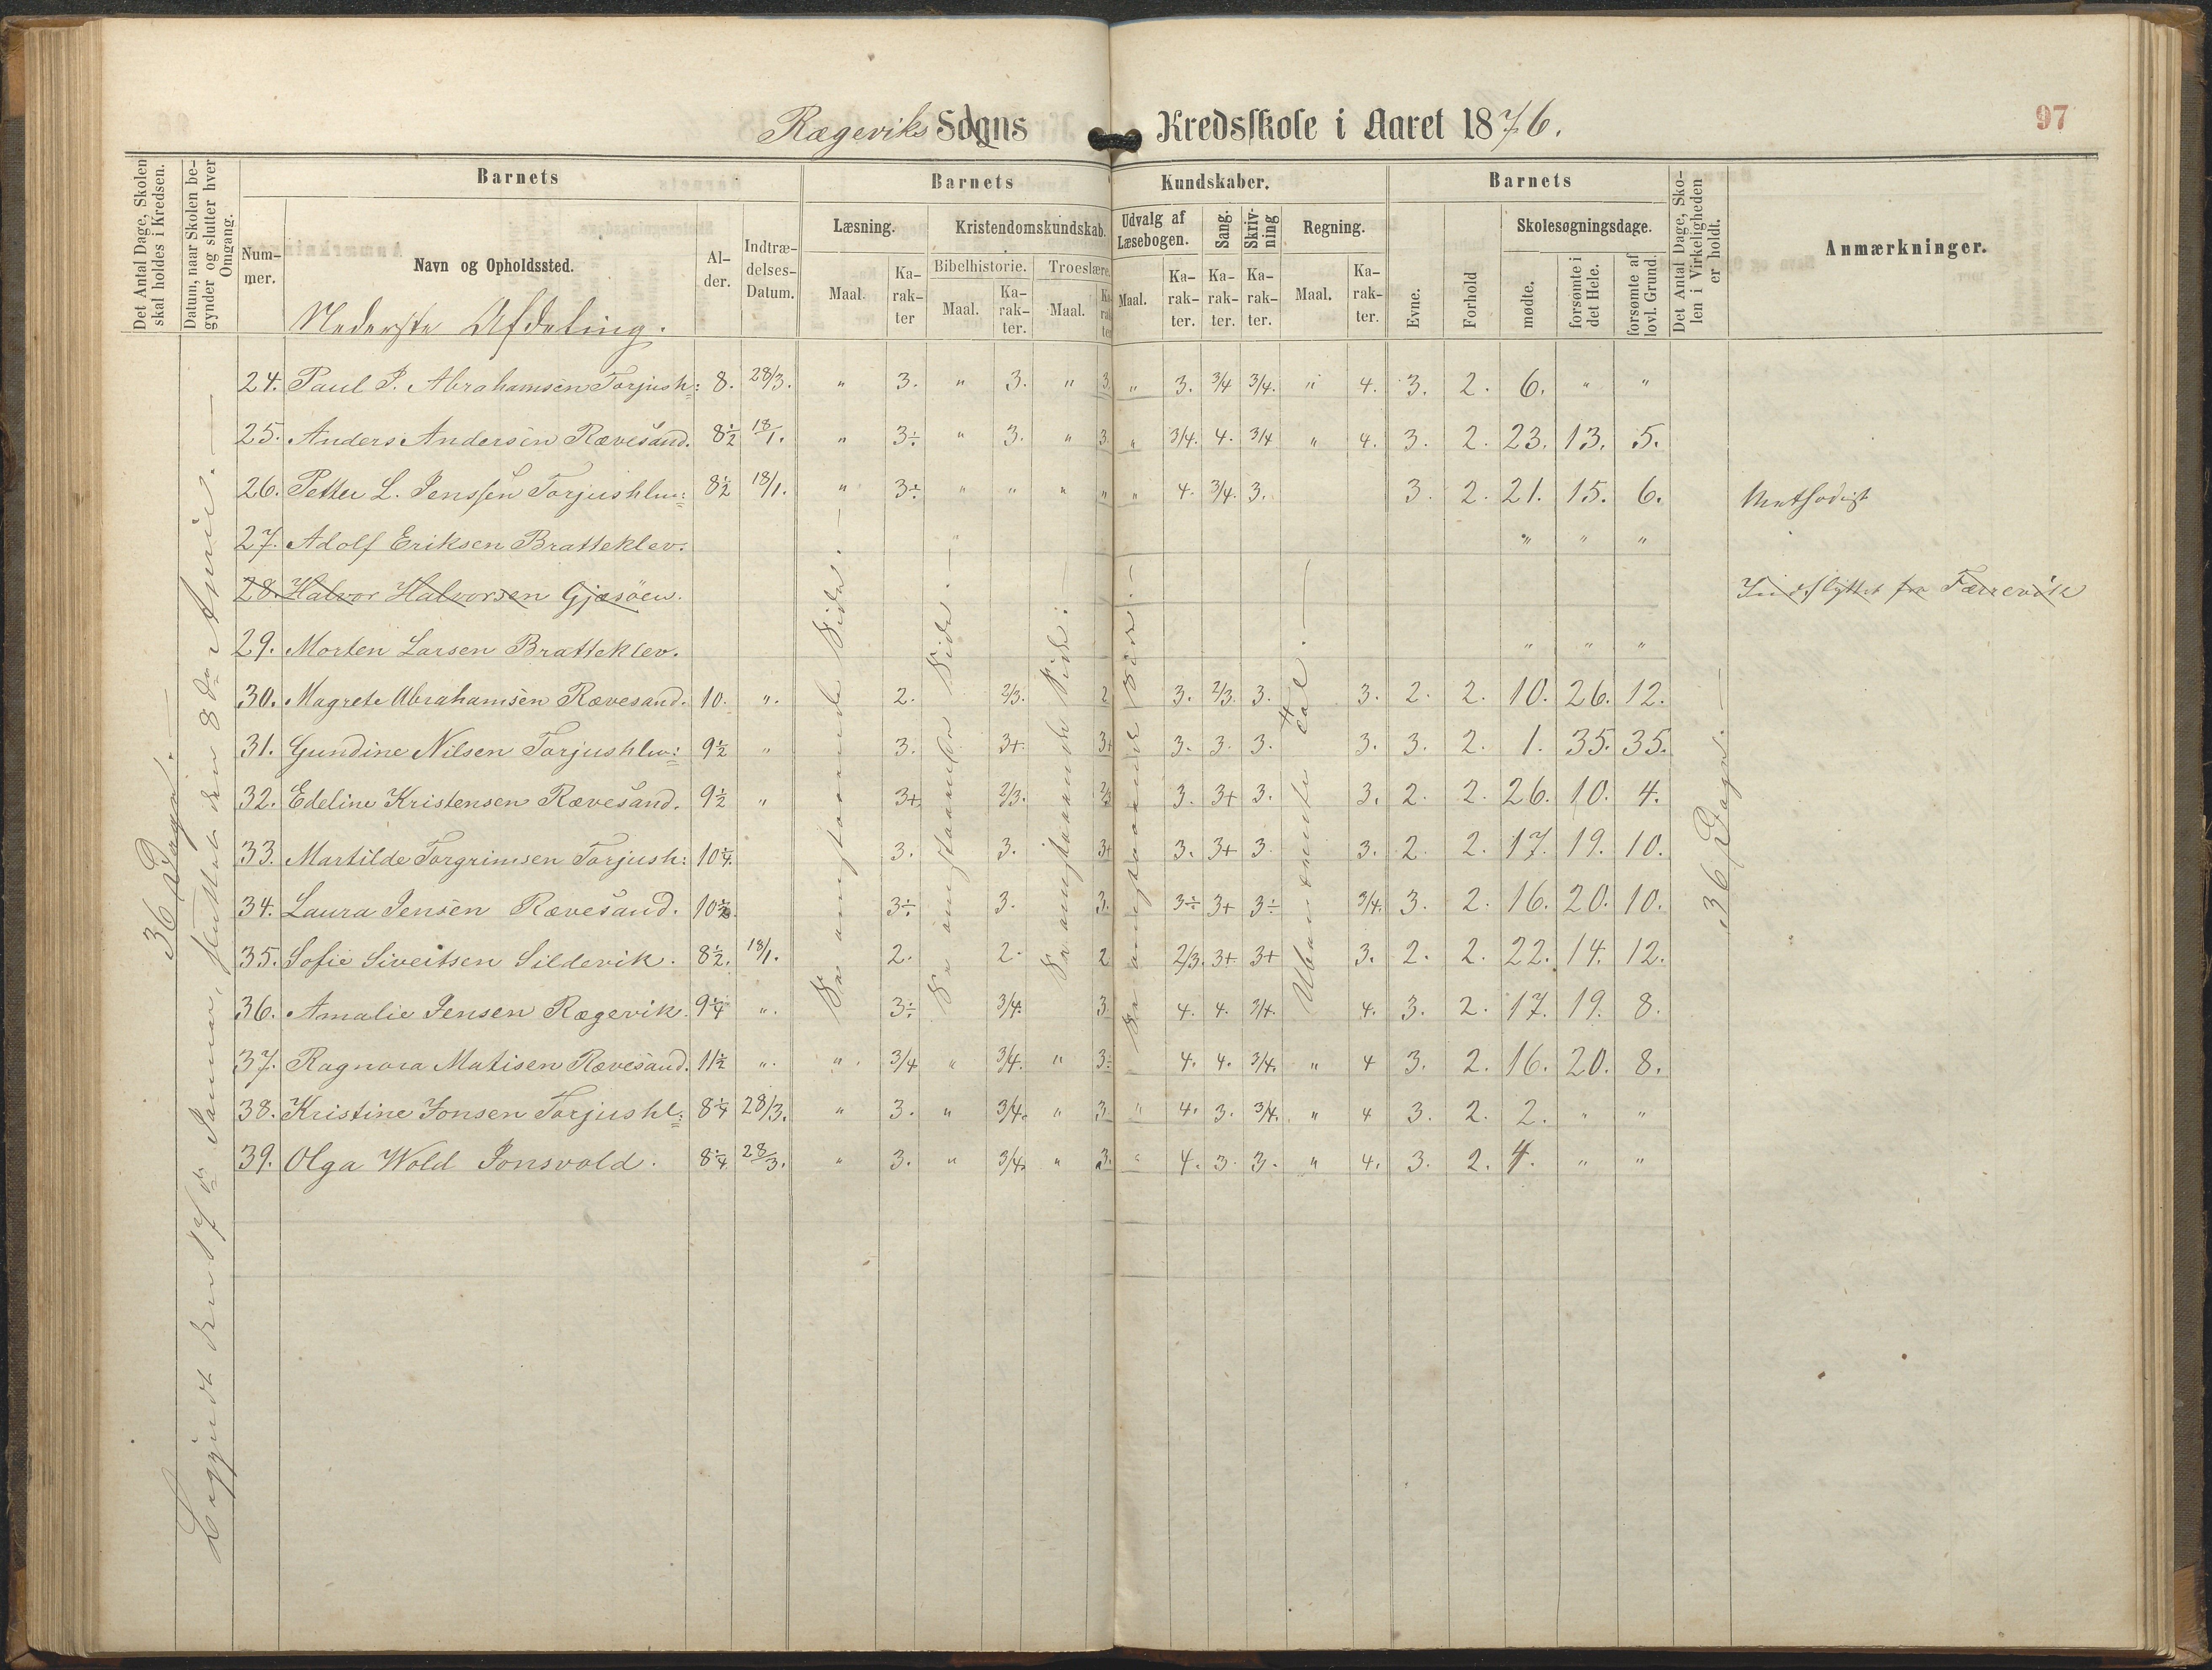 Rægeviks Sogns Kredsskole i Aaret 1876.
97
Det Antal Dage, Skolen skal holdes i Kredsen.
Datum, naar Skolen begynder og slutter hver Omgang.
Barnets
Nummer.
Navn og Opholdssted.
Alder.
Indtrædelses-Datum.
Barnets Kundskaber.
Læsning.
Maal.
Karakter
Kristendomskundskab.
Bibelhistorie.
Maal.
Karakter.
Troeslære.
Maal.
Karakter
Udvalg af Læsebogen.
Maal.
Karakter.
Sang.
Karakter.
Skrivning
Karakter.
Regning.
Maal.
Karakter.
Barnets
Evne.
Forhold
Skolesøgningsdage.
mødte.
forsømte i det Hele.
forsømte af lovl. Grund.
Det Antal Dage, Skolen i Virkeligheden er holdt.
Anmærkninger.
Nederste Afdeling.
24. Paul P. Abrahamsen Torjush: 8. 28/3. " 3. " 3. " 3. " 3. 3/4 3/4. " 4. 3. 2. 6. " "
25. Anders Andersen Rævesand. 8½ 18/1. " 3÷ " 3. " 3. " 3/4. 4. 3/4 " 4. 3. 2. 23. 13. 5.
26. Petter L. Jenssen Torjushlm: 8½ 18/1. " 3÷ " " " " " 4. 3/4. 3. 3. 2. 21. 15. 6.
27. Adolf Eriksen Bratteklev. " " "
28. Halvor Halvorsen Gjæsöen. Indflyttet fra Færrevik
29. Morten Larsen Bratteklev. " " "
30. Magrete Abrahamsen Rævesand. 10. ". 2. 2/3. 2 3. 2/3. 3. 3. 2. 2. 10. 26. 12.
31. Gundine Nilsen Torjushlm: 9½ " 3. 3+. 3+ 3. 3. 3. 3. 3. 2. 1. 35. 35.
32. Edeline Kristensen Rævesand. 9½ " 3+ 2/3. 2/3 3. 3+ 3. 3. 2. 2. 26. 10. 4.
33. Martilde Torgrimsen Torjush: 10¼. 3. 3. 3+ 3. 3+ 3. 3. 2. 2. 17. 19. 10.
34. Laura Jensen Rævesand. 10½. 3÷ 3. 3. 3÷ 3+ 3÷ 3/4. 3. 2. 16. 20. 10.
35. Sofie Siveitsen Sildevik. 8½. 18/1. 2. 2. 2 2/3. 3+ 3+ 3. 2. 2. 22. 14. 12.
36. Amalie Jensen Rægevik. 9¼ ". 3÷ 3/4. 3. 4. 4. 3/4. 4. 3. 2. 17. 19. 8.
37. Ragnara Matisen Rævesand. 11½ ". ". 3/4 " 3/4. " 3÷ 4. 4. 3/4. " 4 3. 2. 16. 20. 8.
38. Kristine Jonsen Torjushl: 8¼ 28/3. " 3. " 3/4. " 3. " 4. 3. 3/4. " 4 3. 2. 2. " "
39. Olga Wold Jonsvold. 8¼ 28/3. " 3. " 3/4. " 3. " 4. 3. 3. " 4. 3. 2. 4. " "
36 Dage.
Begyndt den 17de Januar, sluttet den 8de April.
Se omstaaende Side.
Se omstaaende Side.
Se omstaaende Side.
Se omstaaende Side.
Ubenævnte Tal.
36 Dage.